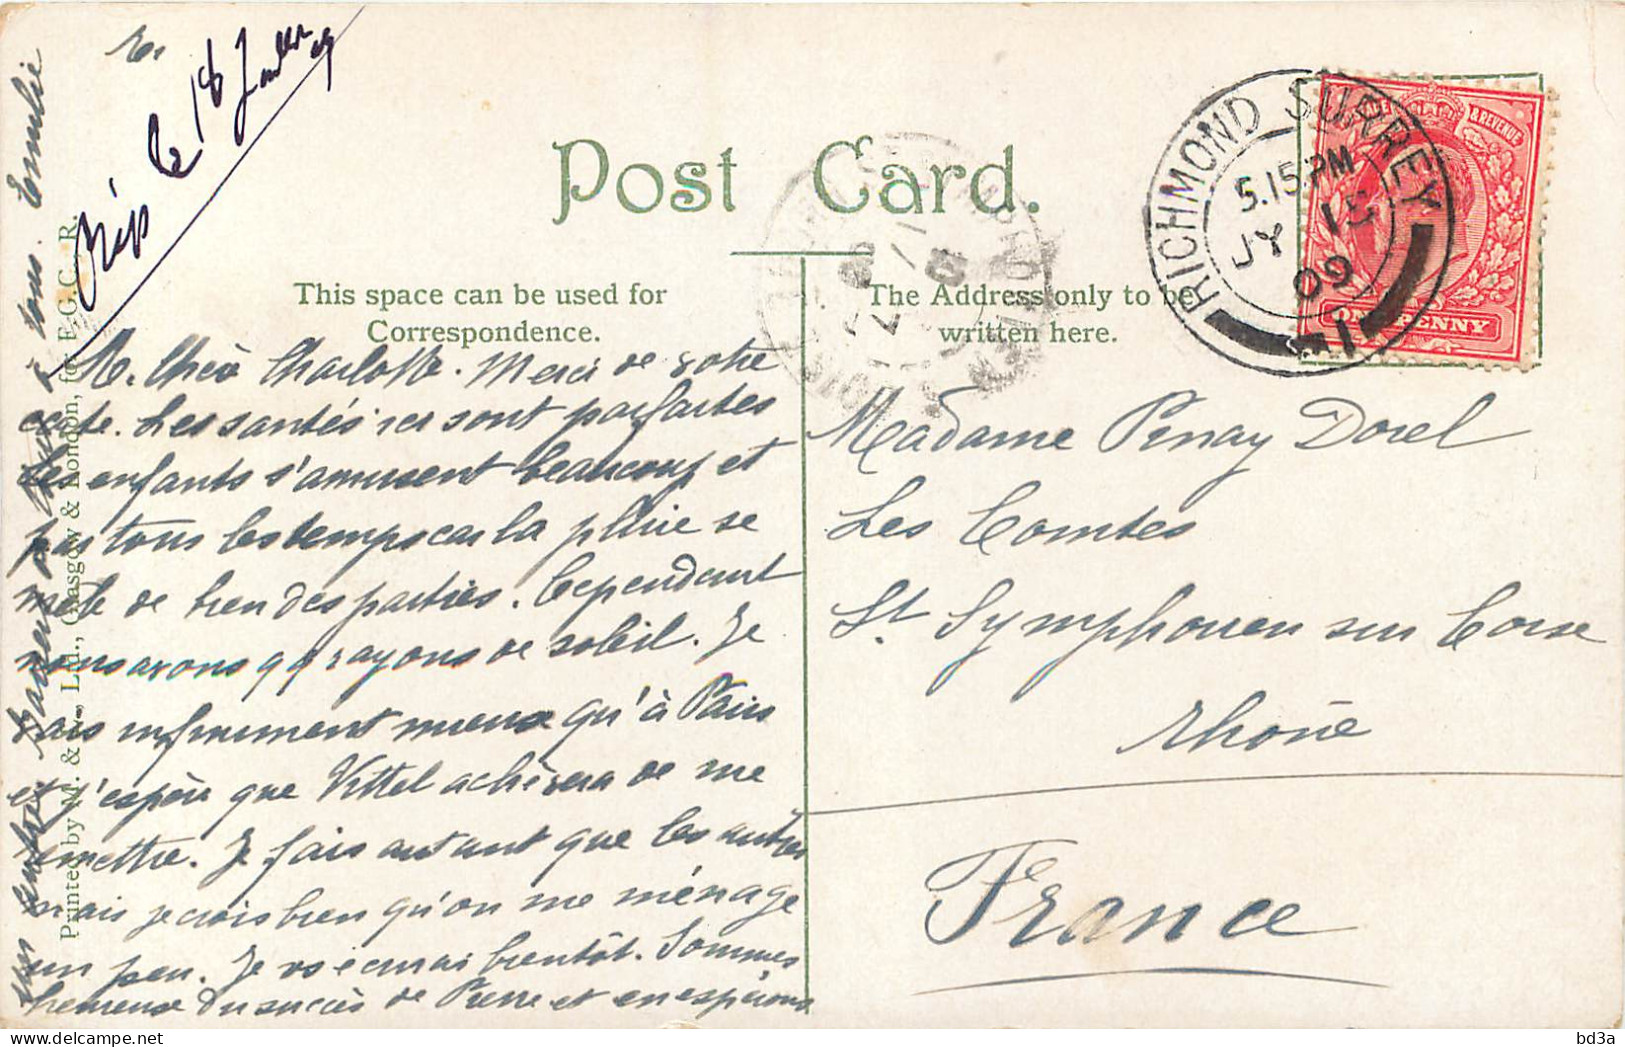 Rép le 18 Juillet 09
Post Card.
This space can be used for
Correspondence.
The Address only to be
written here.
RICHMOND SURREY
5.15 PM
JY 15
09
& REVENUE
ONE PENNY
M. chère Charlotte. Merci de votre
carte. Les santés ici sont parfaites
les enfants s'amusent beaucoup et
pas tous les temps car la pluie se
mêle de bien des parties. Cependant
nous avons qq rayons de soleil. Je
vais infiniment mieux qu'à Paris
et j'espère que Vittel achèvera de me
remettre. Je fais autant que les autres
mais je crois bien qu'on me ménage
un peu. Je vs écrirai bientôt. Sommes
heureux du succès de Pierre et en espérons
un autre
à tous. Emmlie
Madame Penay Dorel
Les Comtes
St Symphorien sur Coise
Rhône
France
Printed by M. & Ltd., Glasgow & London, for E.G.C., R.
bd3a